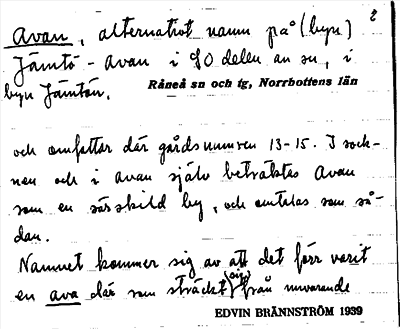 2
Avan, alternativt namn på (byn)
Jämtö-avan i SO delen av sn, i
byn Jämtön.
Råneå sn och tg, Norrbottens län
och omfattar där gårdsnumren 13-15. I sock-
nen och i avan själv betraktas Avan
som en särskild by, och omtalas som så-
dan.
Namnet kommer sig av att det förr varit
en ava där som sträckt sig från nuvarande
EDVIN BRÄNNSTRÖM 1939